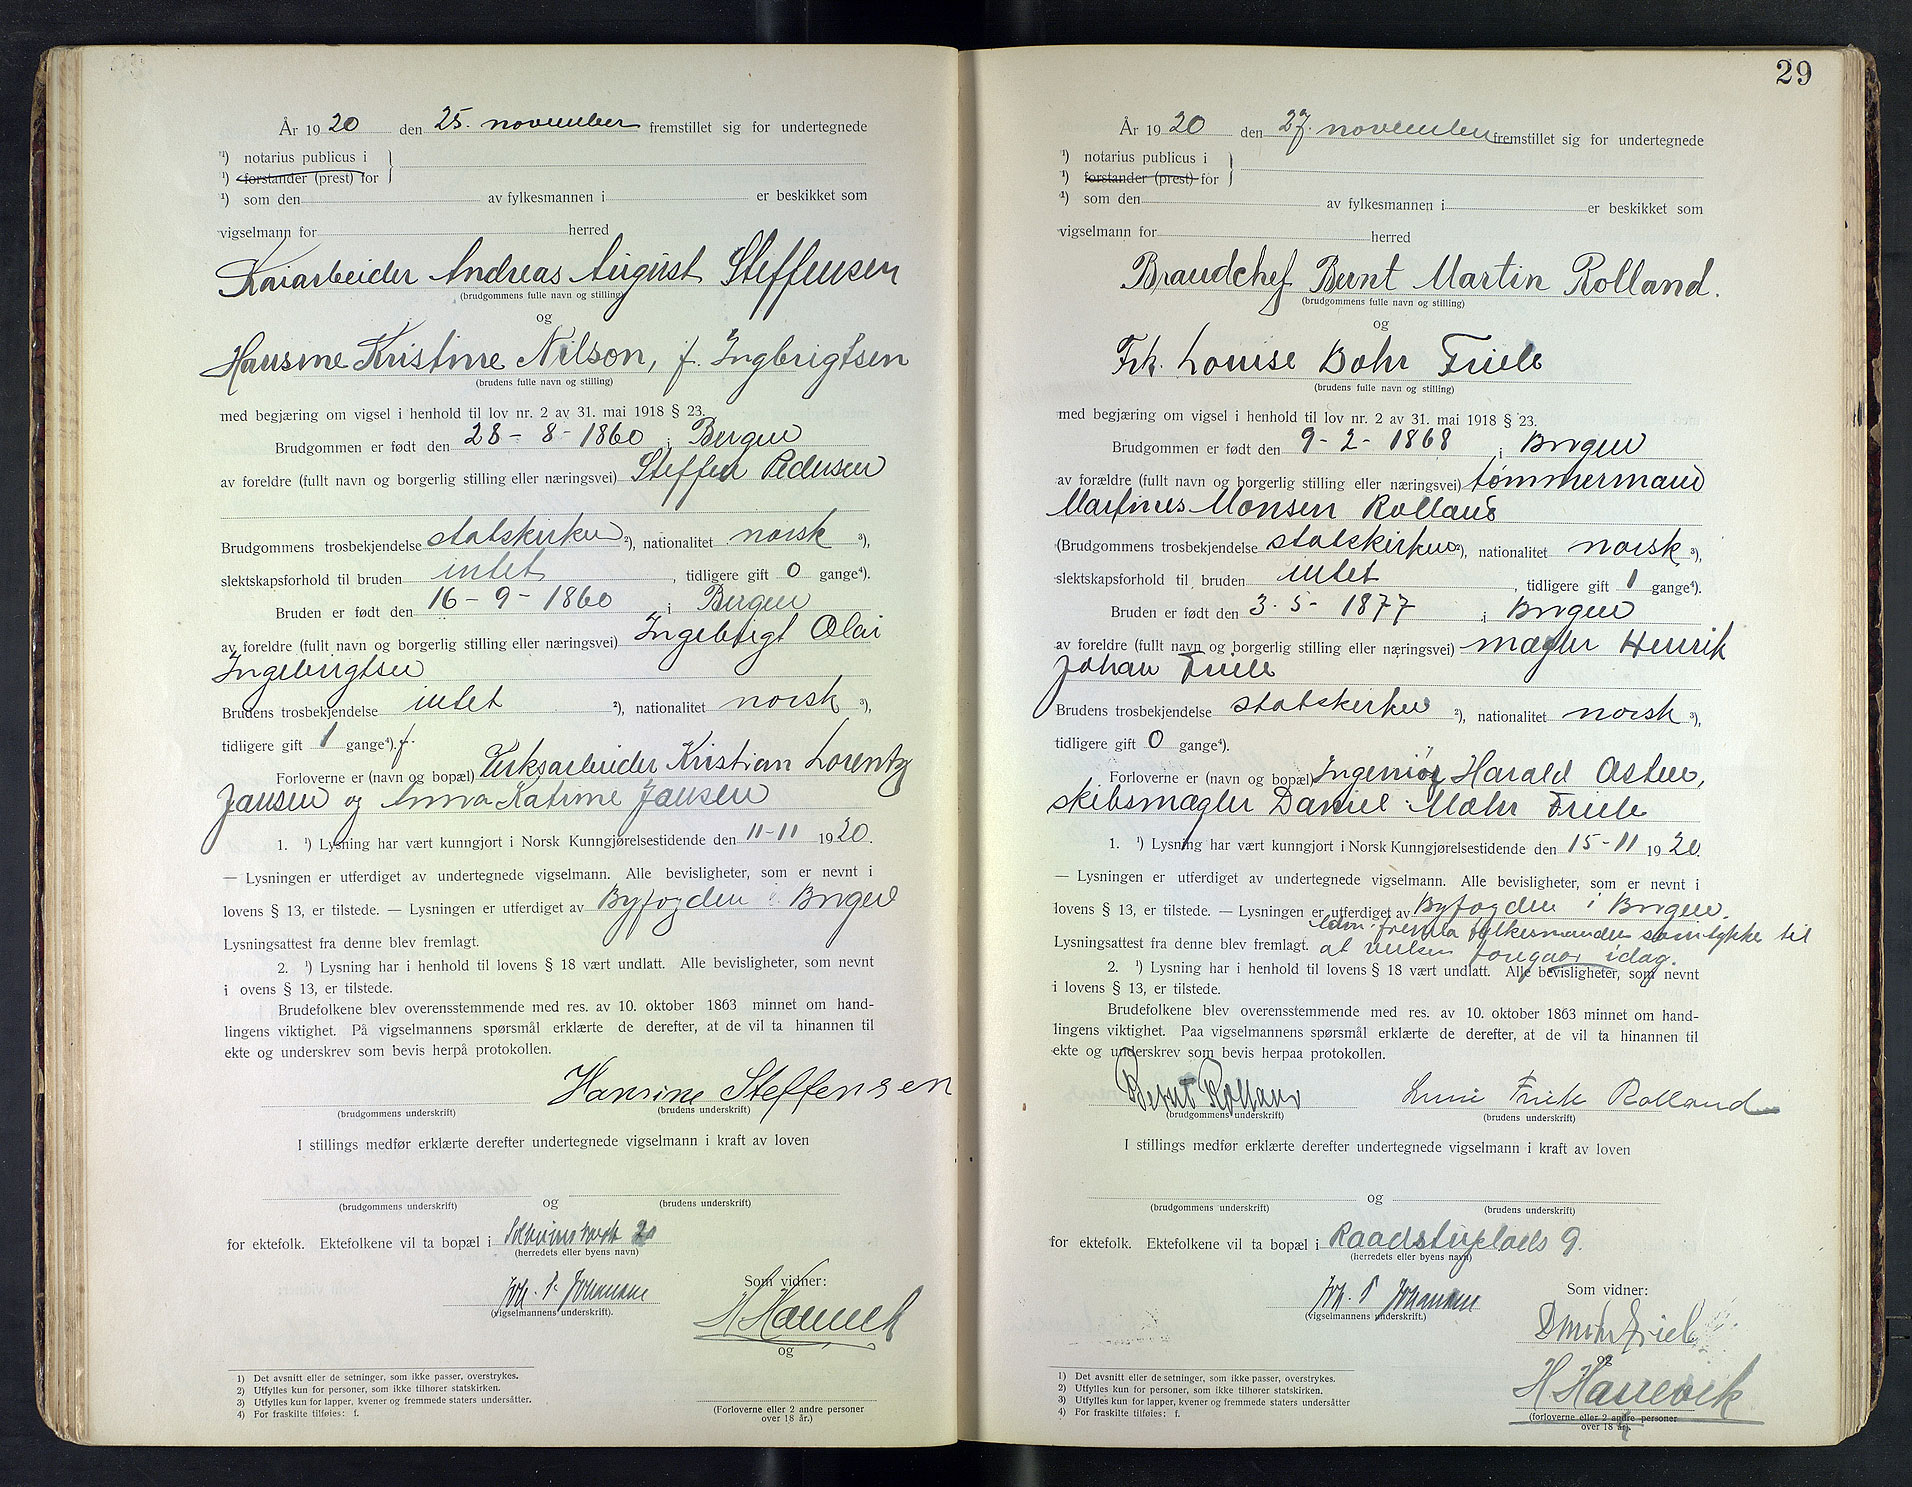 År 1920 den 25. november fremstillet sig for undertegnede
¹) notarius publicus i
¹) forstander (prest) for
¹) som den av fylkesmannen i er beskikket som
vigselmann for herred
Kaiarbeider Andreas August Steffensen
(brudgommens fulle navn og stilling)
og
Hansine Kristine Nilson, f. Ingbrigtsen
(brudens fulle navn og stilling)
med begjæring om vigsel i henhold til lov nr. 2 av 31. mai 1918 § 23.
Brudgommen er født den 28-8-1860 i Bergen
av foreldre (fullt navn og borgerlig stilling eller næringsvei) Steffen Pedersen
Brudgommens trosbekjendelse statskirken ²), nationalitet norsk ³),
slektskapsforhold til bruden intet, tidligere gift 0 gange⁴).
Bruden er født den 16-9-1860 i Bergen
av foreldre (fullt navn og borgerlig stilling eller næringsvei) Ingebrigt Olai
Ingebrigtsen
Brudens trosbekjendelse intet ²), nationalitet norsk ³),
tidligere gift 1 gange⁴). f.
Forloverne er (navn og bopæl) Verksarbeider Kristian Lorentz
Jansen og Anna Katrine Jansen
1. ¹) Lysning har vært kunngjort i Norsk Kunngjørelsestidende den 11-11 1920.
— Lysningen er utferdiget av undertegnede vigselmann. Alle bevisligheter, som er nevnt i
lovens § 13, er tilstede. — Lysningen er utferdiget av Byfogden i Bergen
Lysningsattest fra denne blev fremlagt.
2. ¹) Lysning har i henhold til lovens § 18 vært undlatt. Alle bevisligheter, som nevnt
i ovens § 13, er tilstede.
Brudefolkene blev overensstemmende med res. av 10. oktober 1863 minnet om hand-
lingens viktighet. På vigselmannens spørsmål erklærte de derefter, at de vil ta hinannen til
ekte og underskrev som bevis herpå protokollen.
Hansine Steffensen
(brudgommens underskrift) (brudens underskrift)
I stillings medfør erklærte derefter undertegnede vigselmann i kraft av loven
og
(brudgommens underskrift) (brudens underskrift)
for ektefolk. Ektefolkene vil ta bopæl i
(herredets eller byens navn)
Joh. P. Johansen
(vigselmannens underskrift).
Som vidner:
H Hannevik
og
(Forloverne eller 2 andre personer
over 18 år.)
1) Det avsnitt eller de setninger, som ikke passer, overstrykes.
2) Utfylles kun for personer, som ikke tilhører statskirken.
3) Utfylles kun for lapper, kvener og fremmede staters undersåtter.
4) For fraskilte tilføies: f.
29
År 1920 den 27. november fremstillet sig for undertegnede
¹) notarius publicus i
¹) forstander (prest) for
¹) som den av fylkesmannen i er beskikket som
vigselmann for herred
Brandchef Bernt Martin Rolland.
(brudgommens fulle navn og stilling)
og
Frk. Louise Bohr Friele
(brudens fulle navn og stilling)
med begjæring om vigsel i henhold til lov nr. 2 av 31. mai 1918 § 23.
Brudgommen er født den 9-2-1868 i Bergen
av forældre (fullt navn og borgerlig stilling eller næringsvei) tømmermand
Martines Monsen Rolland
(Brudgommens trosbekjendelse statskirken ²), nationalitet norsk ³),
slektskapsforhold til bruden intet, tidligere gift 1 gange⁴).
Bruden er født den 3-5-1877 i Bergen
av foreldre (fullt navn og borgerlig stilling eller næringsvei) mægler Henrik
Johan Friele
Brudens trosbekjendelse statskirken ²), nationalitet norsk ³),
tidligere gift 0 gange⁴).
Forloverne er (navn og bopæl) Ingeniør Harald Asten,
skibsmægler Daniel Mohr Friele
1. ¹) Lysning har vært kunngjort i Norsk Kunngjørelsestidende den 15-11 1920.
— Lysningen er utferdiget av undertegnede vigselmann. Alle bevisligheter, som er nevnt i
lovens § 13, er tilstede. — Lysningen er utferdiget av Byfogden i Bergen.
fylkesmanden samtykke til
Lysningsattest fra denne blev fremlagt. at vielsen foregaar idag.
2. ¹) Lysning har i henhold til lovens § 18 vært undlatt. Alle bevisligheter, som nevnt
i lovens § 13, er tilstede.
Brudefolkene blev overensstemmende med res. av 10. oktober 1863 minnet om hand-
lingens viktighet. Paa vigselmannens spørsmål erklærte de derefter, at de vil ta hinannen til
ekte og underskrev som bevis herpaa protokollen.
Bernt Rolland Friele Rolland
(brudgommens underskrift) (brudens underskrift)
I stillings medfør erklærte derefter undertegnede vigselmann i kraft av loven
og
(brudgommens underskrift) (brudens underskrift)
for ektefolk. Ektefolkene vil ta bopæl i Raadstuplads 9.
(herredets eller byens navn)
Joh. P Johansen
(vigselmannens underskrift.)
Som vidner:
D Mohr Friele
og
H Hannevik
(forloverne eller 2 andre personer
over 18 år).
1) Det avsnitt eller de setninger, som ikke passer, overstrykes.
2) Utfylles kun for personer, som ikke tilhører statskirken.
3) Utfylles kun for lapper, kvener og fremmede staters undersåtter
4) For fraskilte tilføies: f.